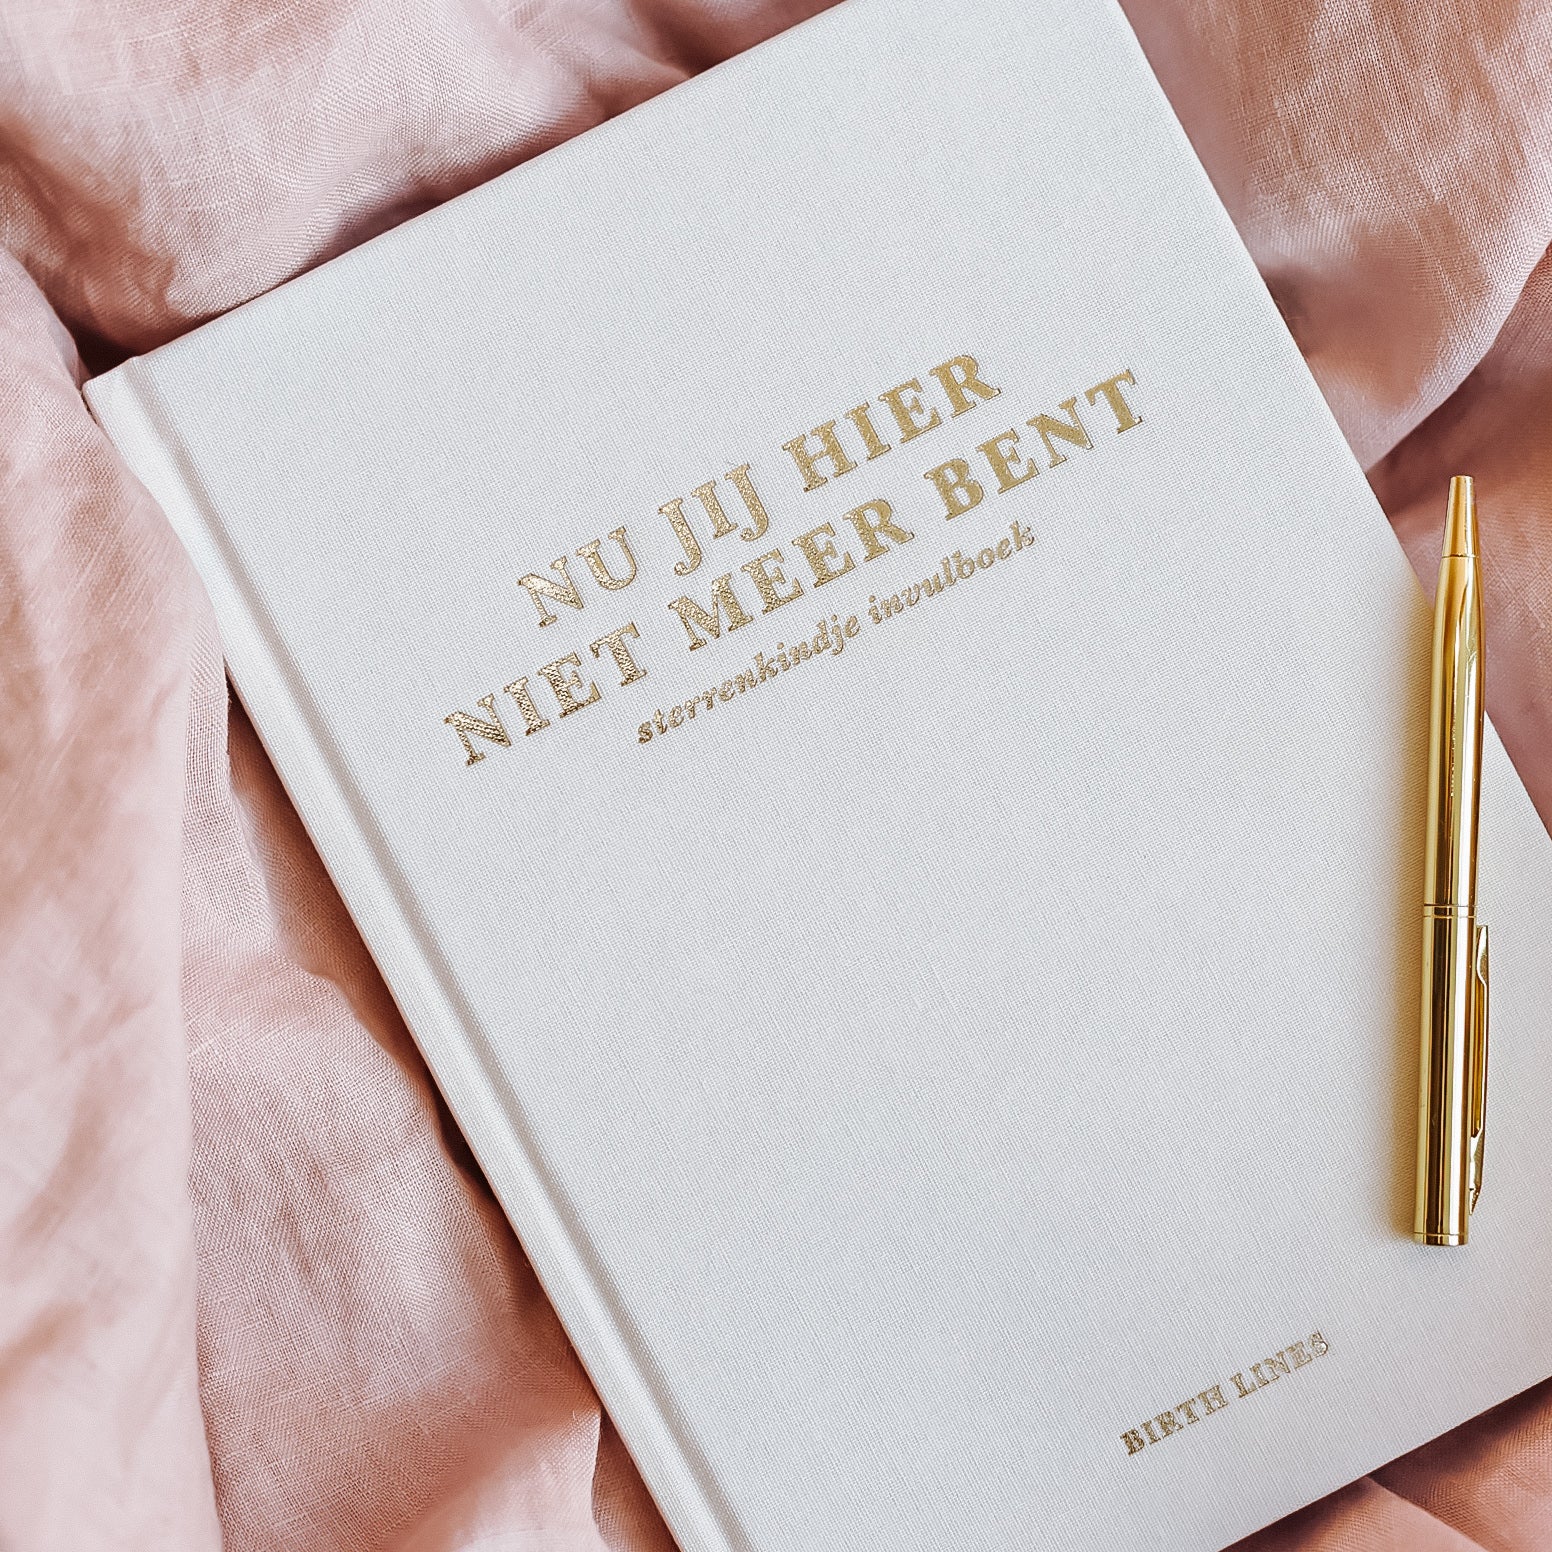 NU JIJ HIER
NIET MEER BENT
sterrenkindje invulboek
BIRTH LINES